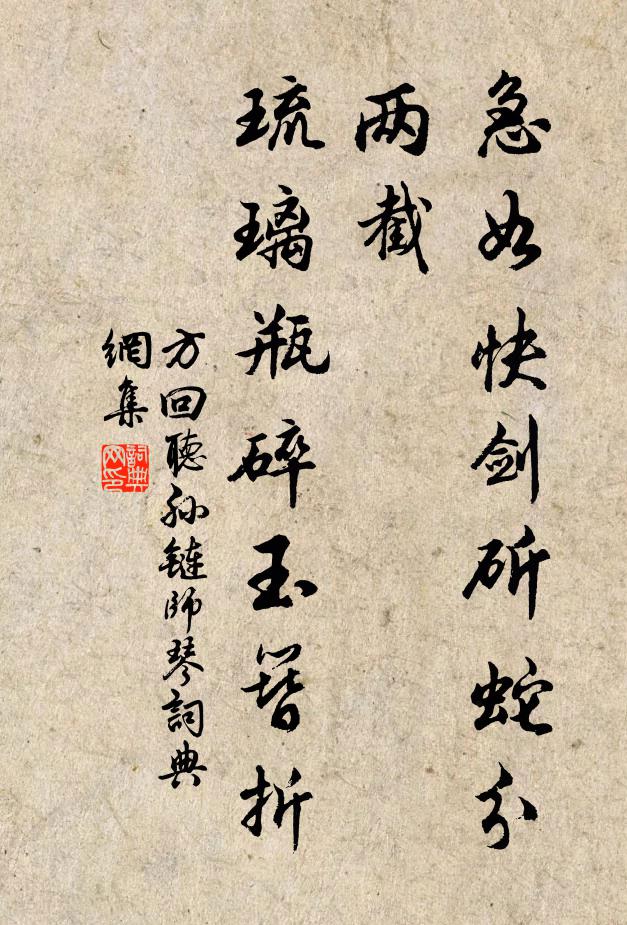 急如快剑斫蛇分
两截
琉璃瓶碎玉簪折
方回聴孙鏈師琴詞典
網集
詞典网印